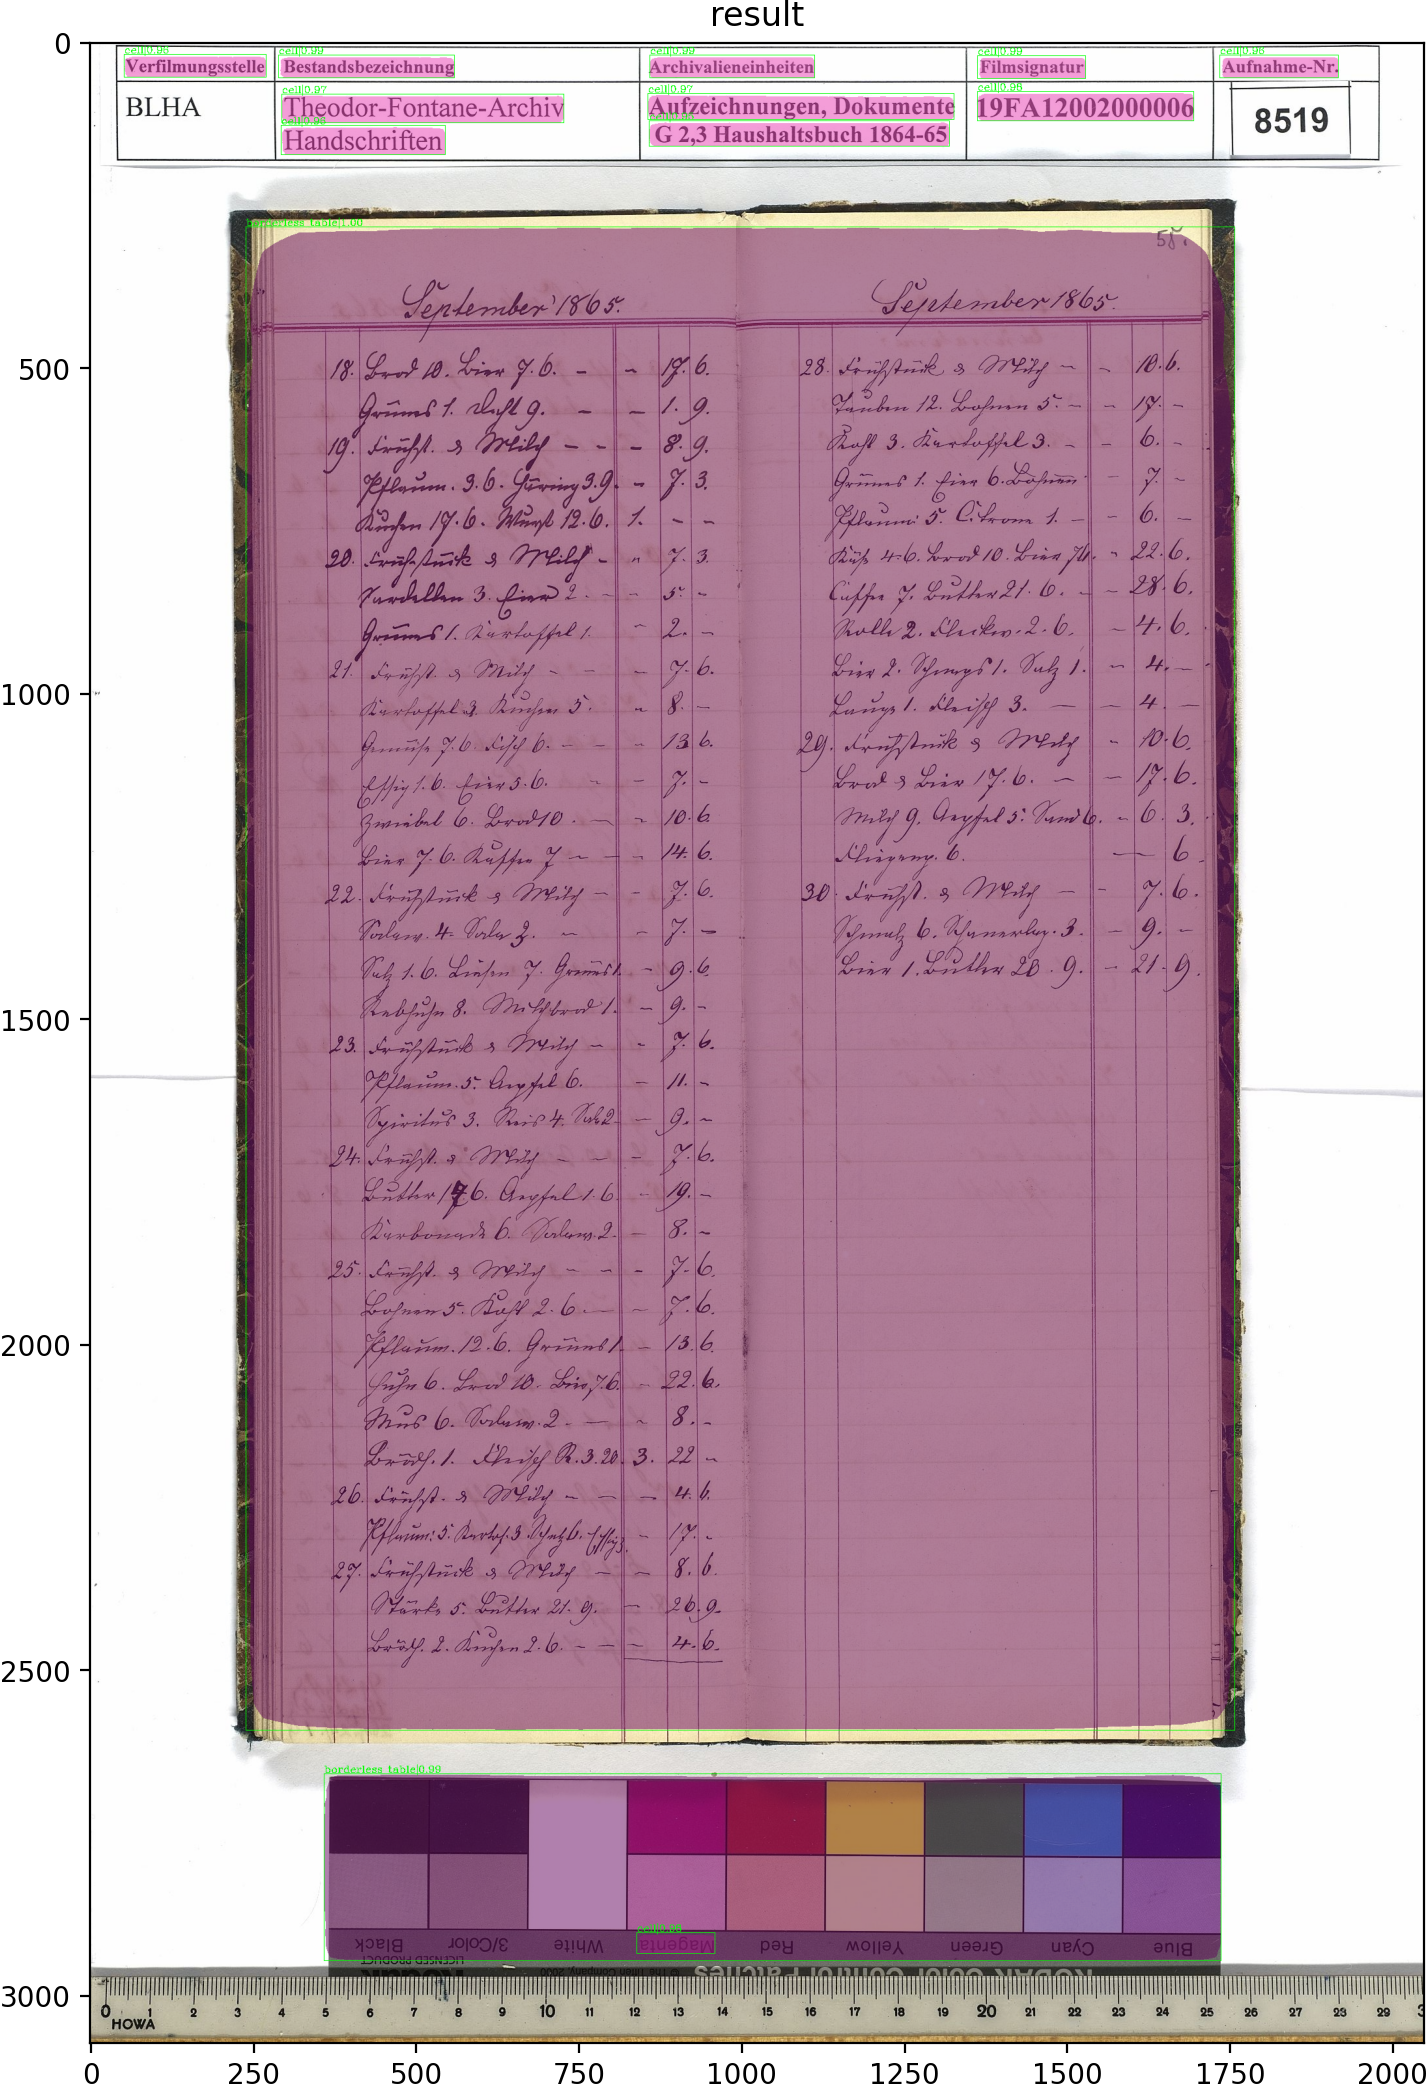 result
Verfilmungsstelle Bestandsbezeichnung Archivalieneinheiten Filmsignatur Aufnahme-Nr.
BLHA Theodor-Fontane-Archiv Aufzeichnungen, Dokumente 19FA12002000006 8519
Handschriften G 2,3 Haushaltsbuch 1864-65
borderless table|1.00
58.
September 1865.
18. Brod 10. Bier 7.6. - - 17. 6.
Grünes 1. Docht 9. - - 1. 9.
19. Frühst. & Milch - - - 8. 9.
Pflaum. 3.6. Häring 3.9. - 7. 3.
Kuchen 17.6. Wurst 12.6. 1. - -
20. Frühstück & Milch - - 7. 3.
Sardellen 3. Eier 2. - - 5. -
Grünes 1. Kartoffel 1. - 2. -
21. Frühst. & Milch - - - 7. 6.
Kartoffel 3. Kuchen 5. - 8. -
Gemüse 7.6. Fisch 6. - - - 13. 6.
Essig 1.6. Eier 5.6. - - 7. -
Zwiebel 6. Brod 10. - - 10. 6.
Bier 7.6. Kaffee 7 - - - 14. 6.
22. Frühstück & Milch - - 7. 6.
4. 3. - - 7. -
Salz 1.6. 7. Grünes 1. - 9. 6.
Rebhuhn 8. Milchbrod 1. - 9. -
23. Frühstück & Milch - - 7. 6.
Pflaum. 5. Aepfel 6. - 11. -
Spiritus 3. Reis 4. 2. - 9. -
24. Frühst. & Milch - - - 7. 6.
Butter 17.6. Aepfel 1.6. - 19. -
Karbonade 6. 2. - 8. -
25. Frühst. & Milch - - - 7. 6.
Bohnen 5. Kohl 2.6. - - 7. 6.
Pflaum. 12.6. Grünes 1. - 13. 6.
Huhn 6. Brod 10. Bier 7.6. - 22. 6.
Mus 6. 2. - - 8. -
Brödch. 1. Fleisch R. 3.20. 3. 22 -
26. Frühst. & Milch - - - 4. 6.
Pflaum: 5. Kartof. 3. 6. Essig 3. - 17. -
27. Frühstück & Milch - - 8. 6.
Stärke 5. Butter 21. 9. - 26. 9.
Brödch. 2. Kuchen 2.6. - - - 4. 6.
September 1865.
28. Frühstück & Milch - - 10. 6.
Tauben 12. Bohnen 5. - - 17. -
Kohl 3. Kartoffel 3. - - 6. -
Grünes 1. Eier 6. Bohnen - 7. -
Pflaum: 5. Citrone 1. - - 6. -
Käse 4.6. Brod 10. Bier 7.6. - 22. 6.
Caffee 7. Butter 21. 6. - - 28. 6.
Rolle 2. Fleckw. 2. 6. - 4. 6.
Bier 2. Schnaps 1. Salz 1. - 4. -
Lauge 1. Fleisch 3. - - 4. -
29. Frühstück & Milch - 10. 6.
Brod & Bier 17.6. - - 17. 6.
Milch 9. Aepfel 5. Sand 6. - 6. 3.
6. - 6.
30. Frühst. & Milch - - 7. 6.
Schmalz 6. 3. - 9. -
Bier 1. Butter 20. 9. - 21. 9.
borderless table|0.99
Black 3/Color White Magenta Red Yellow Green Cyan Blue
LICENSED PRODUCT
© The Tiffen Company 2000
KODAK Color Control Patches
0 1 2 3 4 5 6 7 8 9 10 11 12 13 14 15 16 17 18 19 20 21 22 23 24 25 26 27 28 29
HOWA
0 500 1000 1500 2000 2500 3000
0 250 500 750 1000 1250 1500 1750 2000